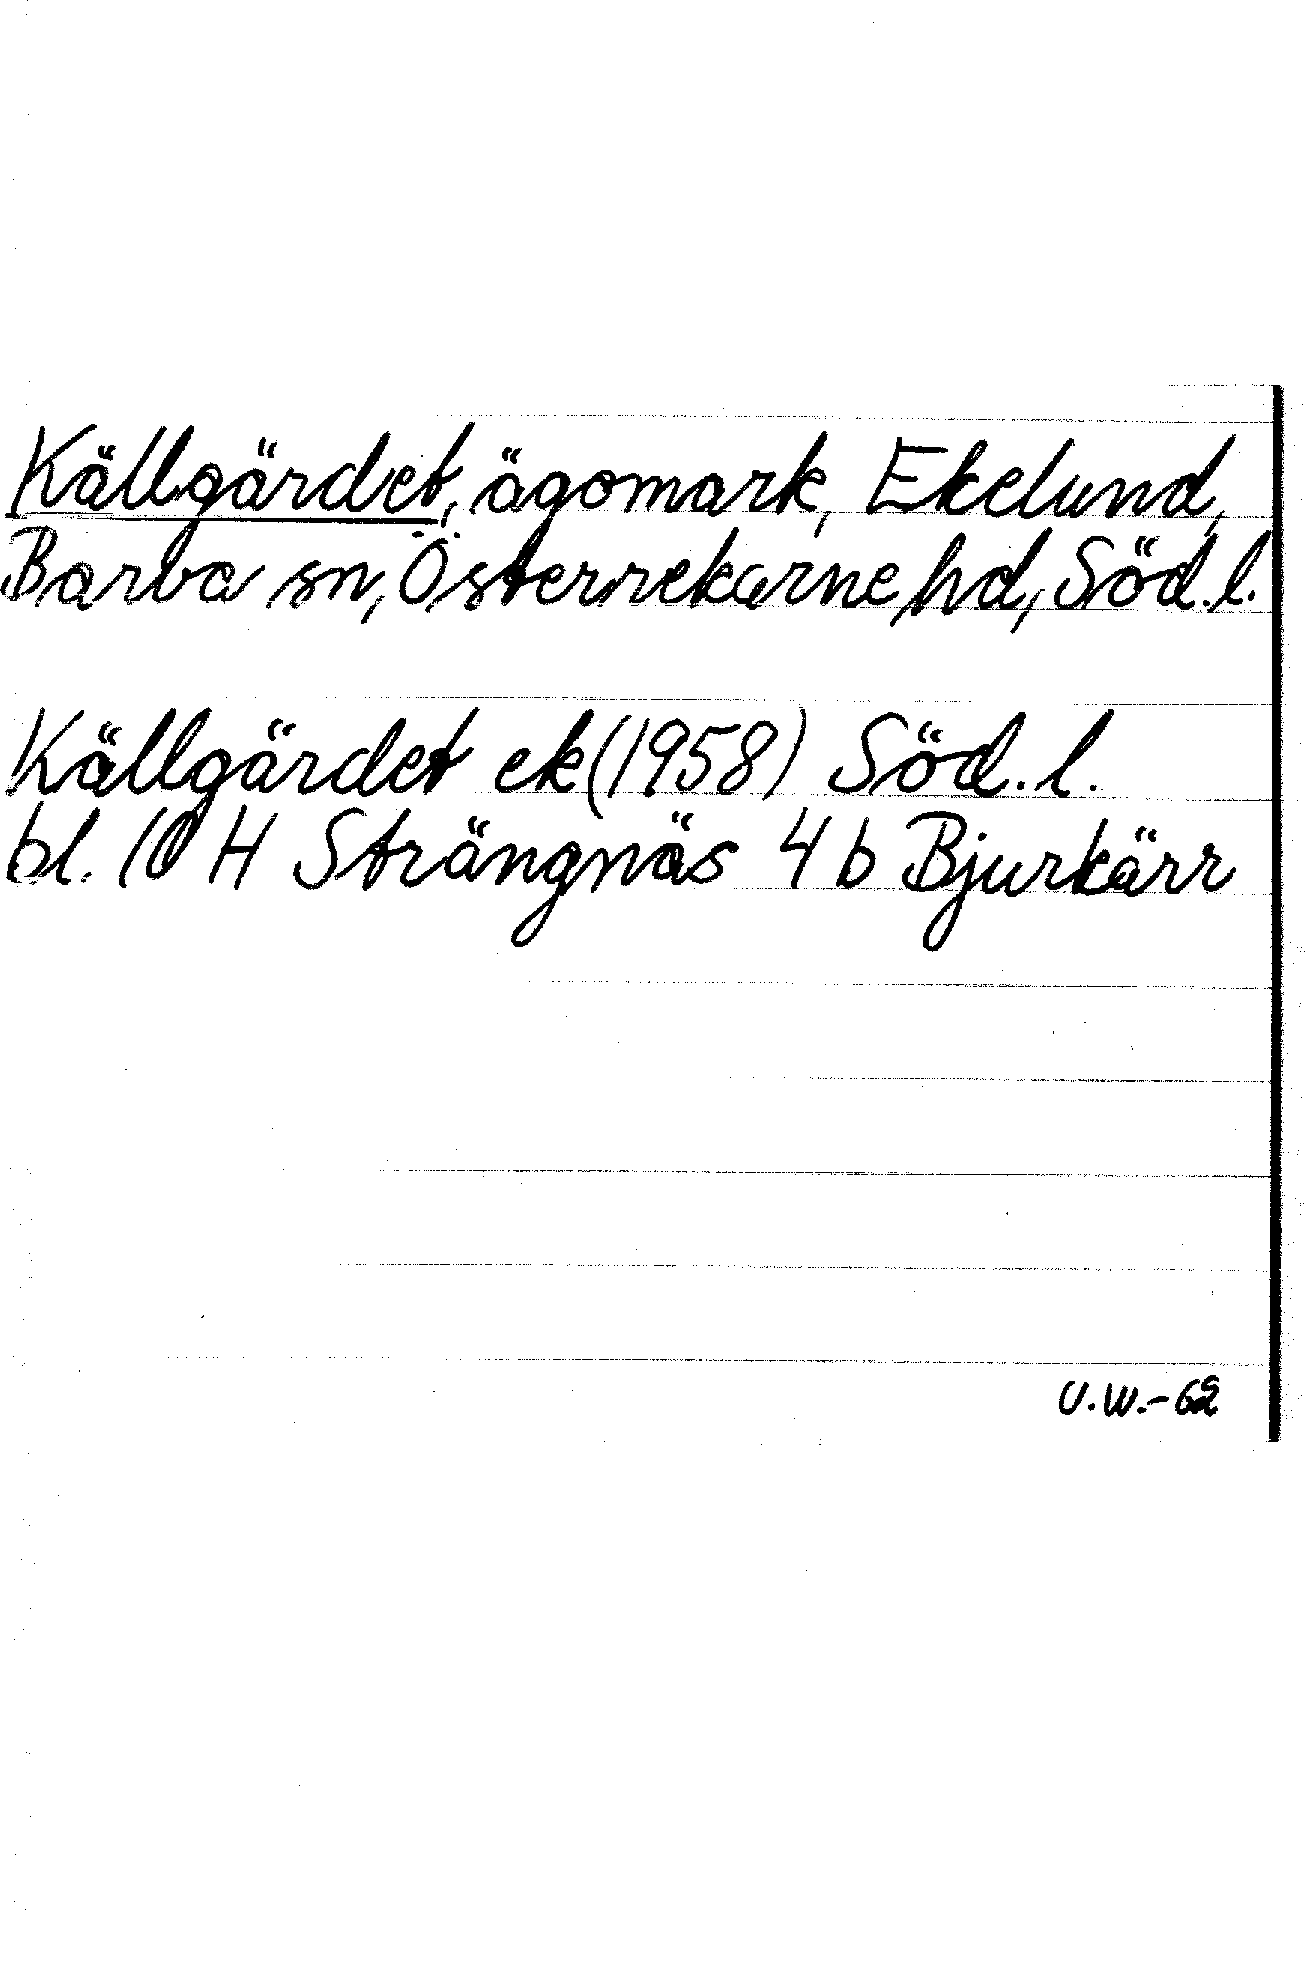 Källgärdet, ägomark, Ekelund,
Barva sn, Österrekarne hd, Söd.l.
Källgärdet ek(1958) Söd.l.
bl. 10 H Strängnäs 4 b Bjurkärr
U.W.-62